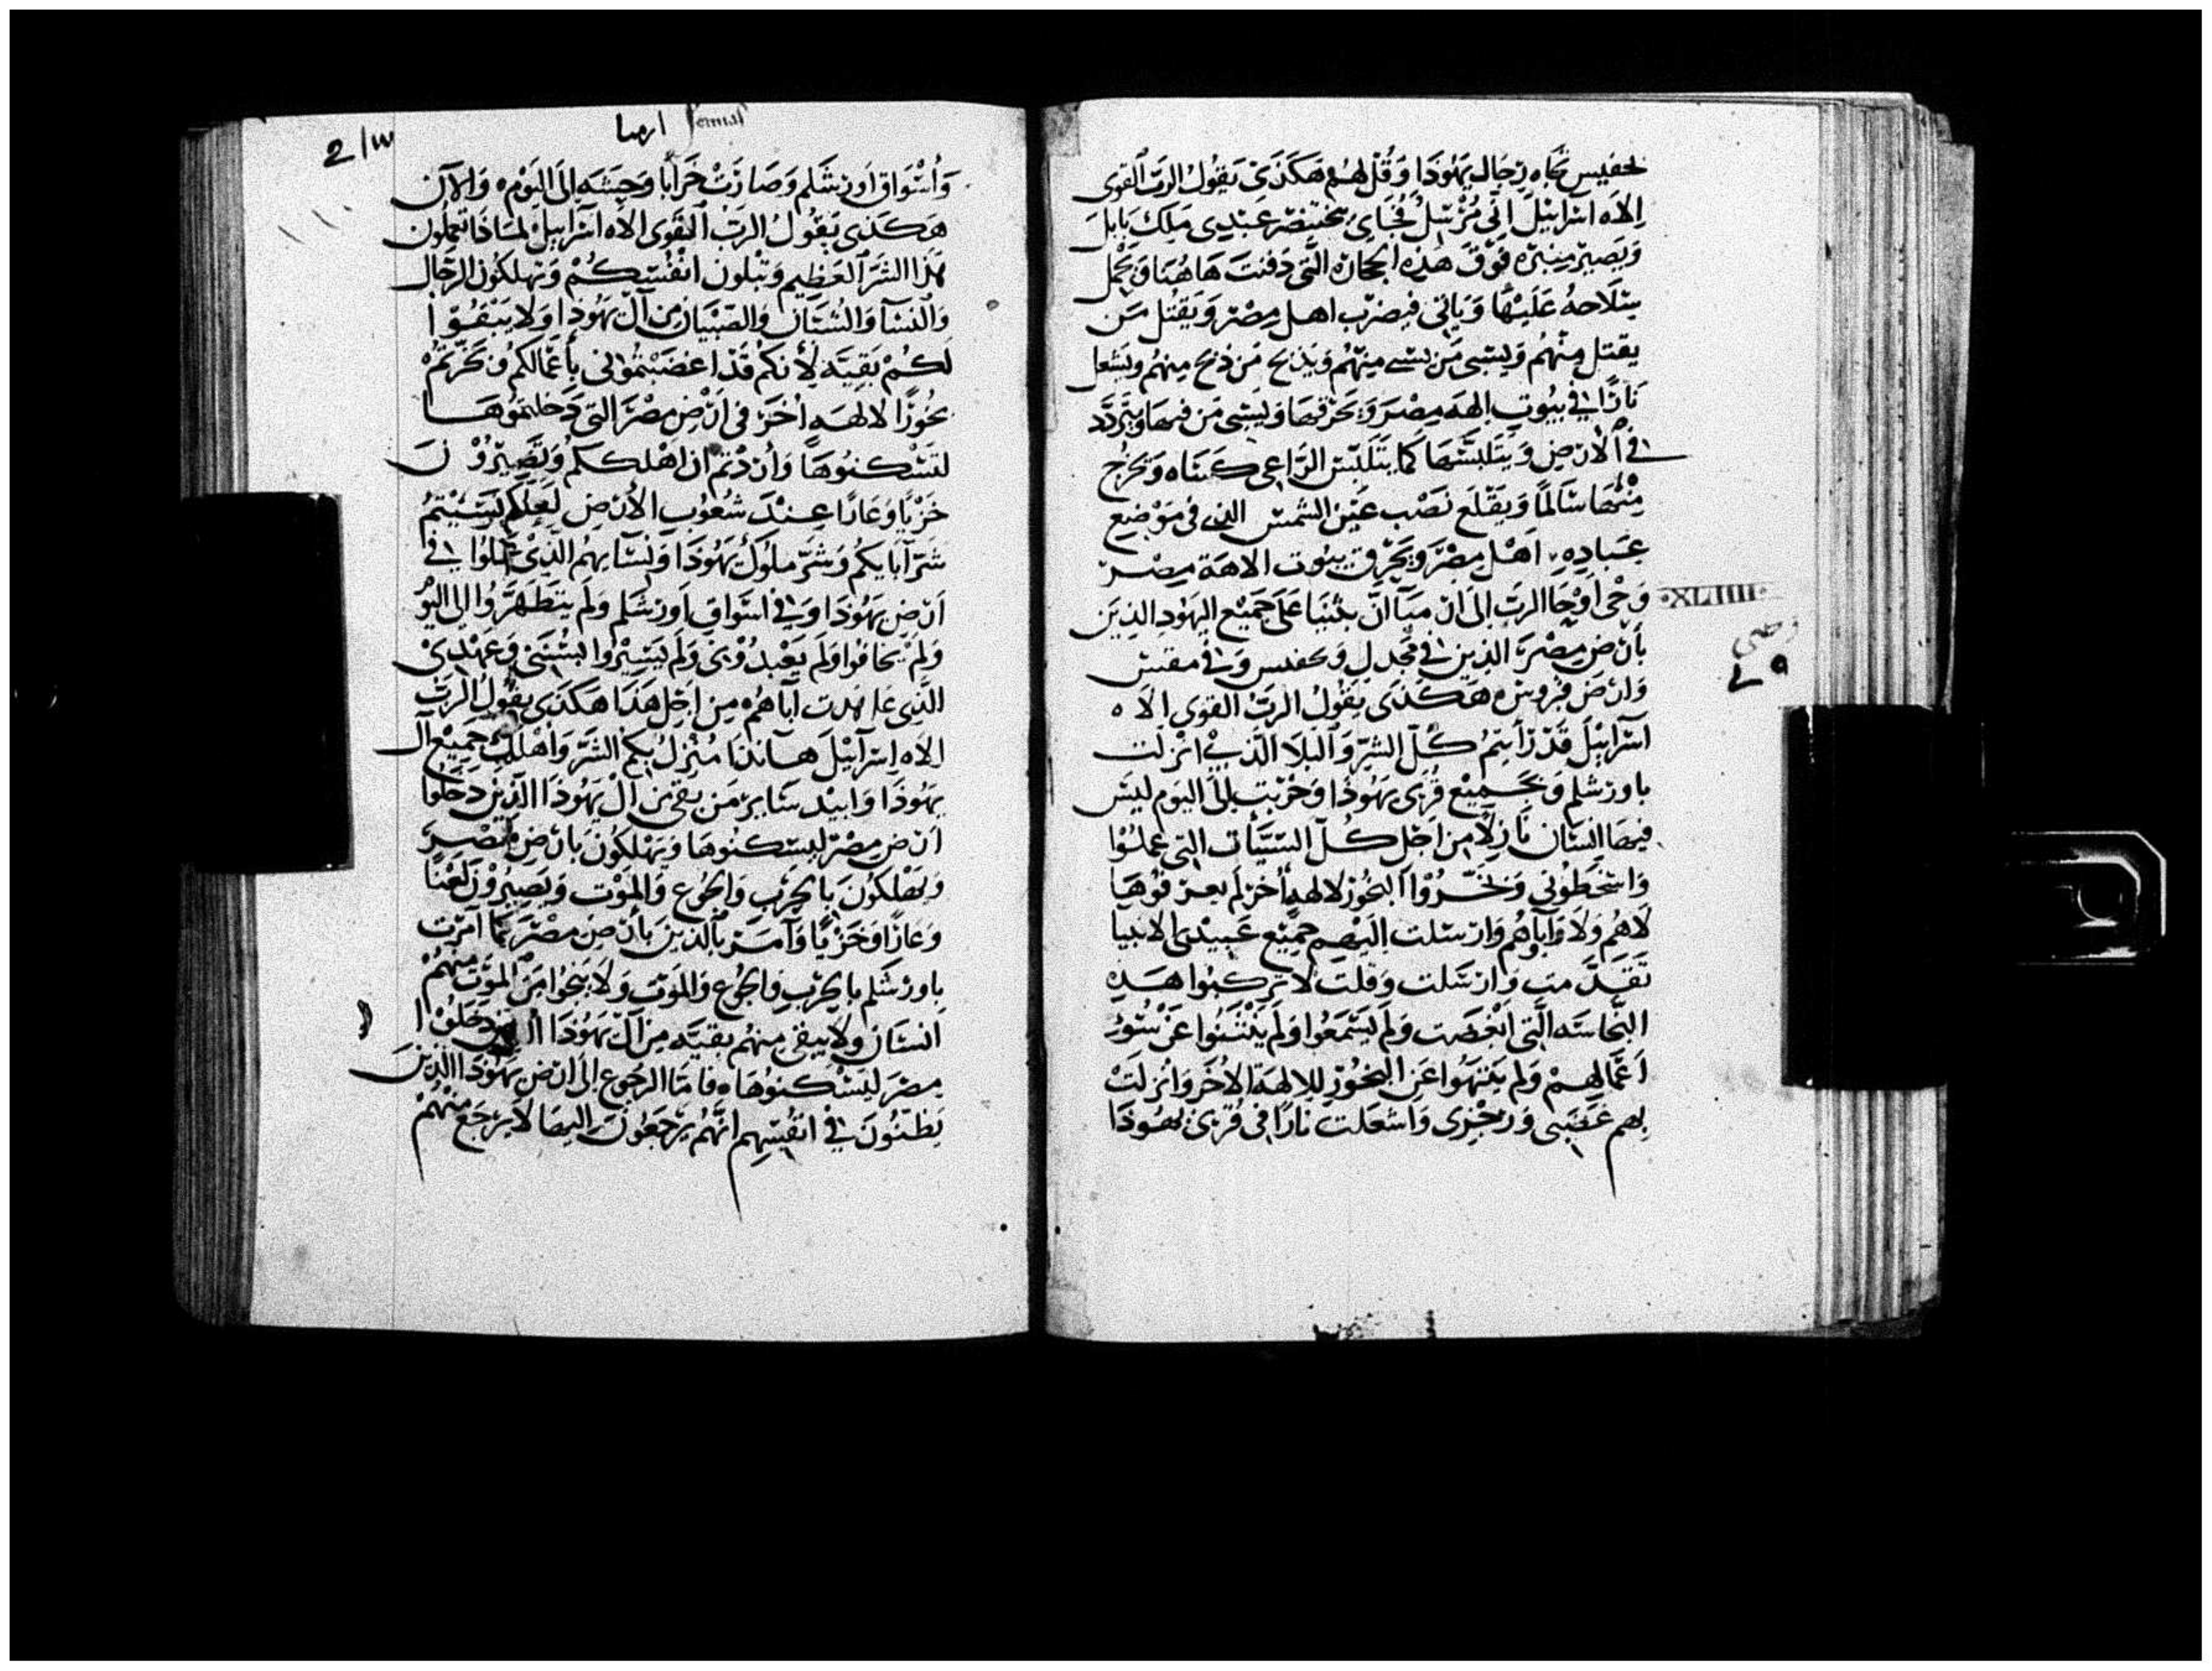 لحفيس تجاه رجال يهوذا وقل لهم هكذى يقول الرب القوى
الاه اسراييل انى مرسل فجاى بختنصر عبدى ملك بابل
ويصير منبره فوق هذه الحجاره التى دفنت هاهنا ويحمل
سلاحه عليها وياتى فيضرب اهل مصر ويقتل من
يقتل منهم ويسبى من يسبى منهم ويذبح من ذبح منهم ويشعل
نارًا فى بيوت الهه مصر ويحرقها ويسبى من فيها ويتردد
فى الارض ويتلبسها كما يتلبس الراعى كساه ويخرج
منها سالما ويقلع نصب عين الشمس التى فى موضع
عباده اهل مصر ويحرق بيوت الاهة مصر
XLIIII
وحى اوحا الرب الى ارميا ان يتنبا على جميع اليهود الذين
بارض مصر الذين فى مجدل وتحفيس وفى مقتس
وارض فروس هكذى يقول الرب القوى الاه
اسراييل قد رأيتم كل الشر والبلا الذى انزلت
باورشلم وبجميع قرى يهوذا وخربت الى اليوم ليس
فيها انسان نازلا من اجل كل السيات التى عملوا
واسخطونى وبخروا البخور لالهه أخر لم يعرفوها
لاهم ولا واباوهم وارسلت اليهم جميع عبيدى الانبيا
تقدمت وارسلت وقلت لا تركبوا هذه
النجاسه التى ابغضت ولم يسمعوا ولم ينتنوا عن سور
اعمالهم ولم ينتهوا عن البخور للالهة الاخر وانزلت
بهم غضبى ورجزى واشعلت نارًا فى قرى يهوذا
ارميا
واسواق اورشلم وصارت خرابا وحشه الى اليوم ه والان
هكذى يقول الرب القوى الاه اسراييل لماذا تعملون
هذا الشر العظيم وتبلون انفسكم وتهلكون الرجال
والنسا والشبان والصبيان من آل يهوذا ولا يبقوا
لكم بقيه لأنكم قد اغضبتمونى بأعمالكم وبخرتم
بخورًا لالهه أخر فى ارض مصر التى دخلتموها
لتسكنوها وأردتم ان اهلككم وتصيرون
خزيا وعارا عند شعوب الأرض لعلكم نسيتم
شر آبايكم وشر ملوك يهوذا ونسايهم الذى عملوا فى
ارض يهوذا وفى اسواق اورشلم ولم يتطهروا الى اليوم
ولم يخافوا ولم يعبدونى ولم يسيروا بسننى وعهدى
الذى عاهدت آباهم من اجل هذا هكذى يقول الرب
الاه اسرآييل هانذا منزل بكم الشر واهلك جميع آل
يهوذا وابيد ساير من بقى من آل يهوذا الذين دخلوا
ارض مصر ليسكنوها ويهلكون بارض مصر
ويهلكون بالحرب والجوع والموت ويصيرون لعنا
وعارًا وخزيًا وآمر بالذين بأرض مصر كما امرت
باورشلم بالحرب والجوع والموت ولا ينجوا من الموت منهم
انسان ولا يبقى منهم بقيه من آل يهوذا الذين دخلوا
مصر ليسكنوها ه فاما الرجوع الى ارض يهوذا الذين
يظنون فى انفسهم انهم يرجعون اليها لا يرجع منهم